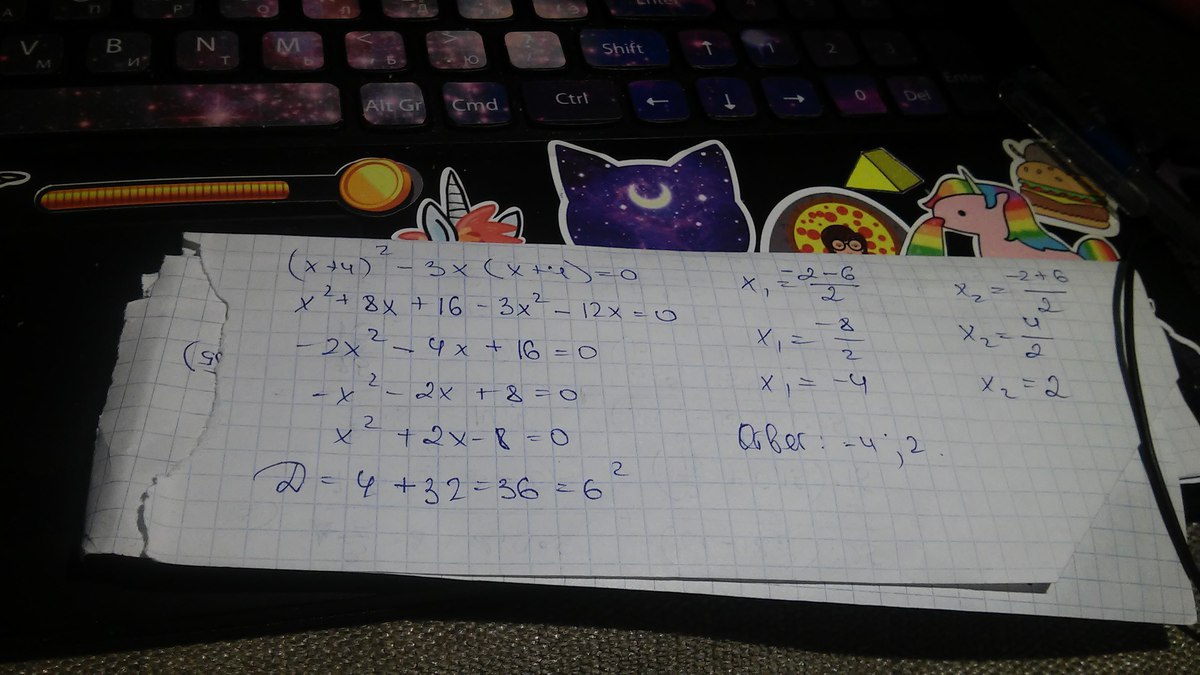 V М
B И
N Т
M Ь
< Б
> Ю
?
Shift
↑
1
2
3
Enter
Alt Gr
Cmd
Ctrl
←
↓
→
0
Del
(x+4)² - 3x(x+4)=0
x² + 8x + 16 - 3x² - 12x = 0
- 2x² - 4x + 16 = 0
- x² - 2x + 8 = 0
x² + 2x - 8 = 0
D = 4 + 32 = 36 = 6²
x₁ = \frac{-2-6}{2}
x₁ = \frac{-8}{2}
x₁ = -4
x₂ = \frac{-2+6}{2}
x₂ = \frac{4}{2}
x₂ = 2
Ответ: -4; 2.